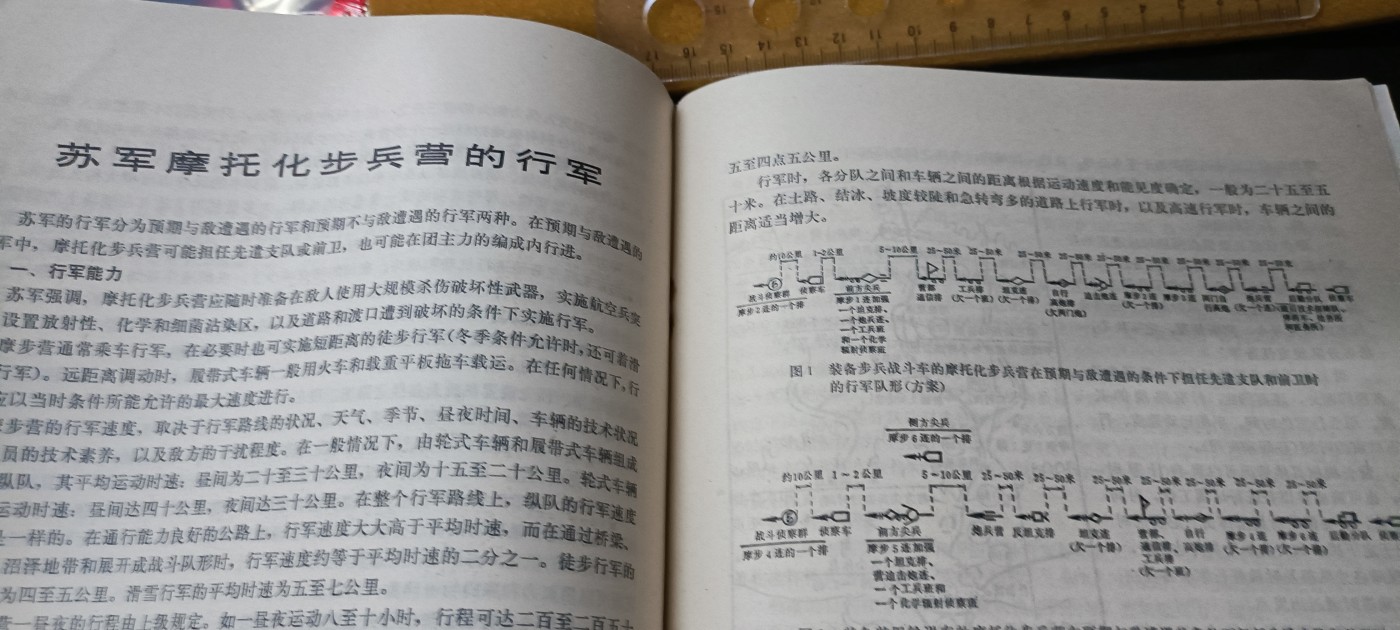 苏军摩托化步兵营的行军
苏军的行军分为预期与敌遭遇的行军和预期不与敌遭遇的行军两种。在预期与敌遭遇的
军中，摩托化步兵营可能担任先遣支队或前卫，也可能在团主力的编成内行进。
一、行军能力
苏军强调，摩托化步兵营应随时准备在敌人使用大规模杀伤破坏性武器，实施航空兵突
设置放射性、化学和细菌沾染区，以及道路和渡口遭到破坏的条件下实施行军。
摩步营通常乘车行军，在必要时也可实施短距离的徒步行军（冬季条件允许时，还可着滑
行军）。远距离调动时，履带式车辆一般用火车和载重平板拖车载运。在任何情况下，行
应以当时条件所能允许的最大速度进行。
步营的行军速度，取决于行军路线的状况、天气、季节、昼夜时间、车辆的技术状况
员的技术素养，以及敌方的干扰程度。在一般情况下，由轮式车辆和履带式车辆组成
纵队，其平均运动时速：昼间为二十至三十公里，夜间为十五至二十公里。轮式车辆
运动时速：昼间达四十公里，夜间达三十公里。在整个行军路线上，纵队的行军速度
是一样的。在通行能力良好的公路上，行军速度大大高于平均时速，而在通过桥梁、
沼泽地带和展开成战斗队形时，行军速度约等于平均时速的二分之一。徒步行军的
为四至五公里。滑雪行军的平均时速为五至七公里。
一昼夜的行程由上级规定。如一昼夜运动八至十小时，行程可达二百至二百五十
五至四点五公里。
行军时，各分队之间和车辆之间的距离根据运动速度和能见度确定，一般为二十五至五
十米。在土路、结冰、坡度较陡和急转弯多的道路上行军时，以及高速行军时，车辆之间的
距离适当增大。
约10公里 1-2公里 5-10公里 25-50米 25-50米 25-50米 25-50米 25-50米 25-50米 25-50米 25-50米
战斗侦察群 侦察车 前方尖兵 营部、 工兵排
摩步2连的一个排 摩步1连加强 通信排 (欠一个班) (欠一个排) (欠两门炮)
一个坦克排、
一个炮兵连、
一个工兵班
和一个化学
辐射侦察班
图1 装备步兵战斗车的摩托化步兵营在预期与敌遭遇的条件下担任先遣支队和前卫时
的行军队形（方案）
侧方尖兵
摩步6连的一个排
约10公里 1-2公里 5-10公里 25-50米 25-50米 25-50米 25-50米 25-50米 25-50米 25-50米
战斗侦察群 侦察车 前方尖兵 炮兵营 反坦克排 坦克连 营部、 自行 摩步4连 摩步5连 后勤分队
摩步4连的一个排 摩步5连加强 (欠一个排) 通信排、 高炮排 (欠一个排) (欠一个排)
一个坦克排、 工兵排
营迫击炮连、 (欠一个班)
一个工兵班和
一个化学辐射侦察班